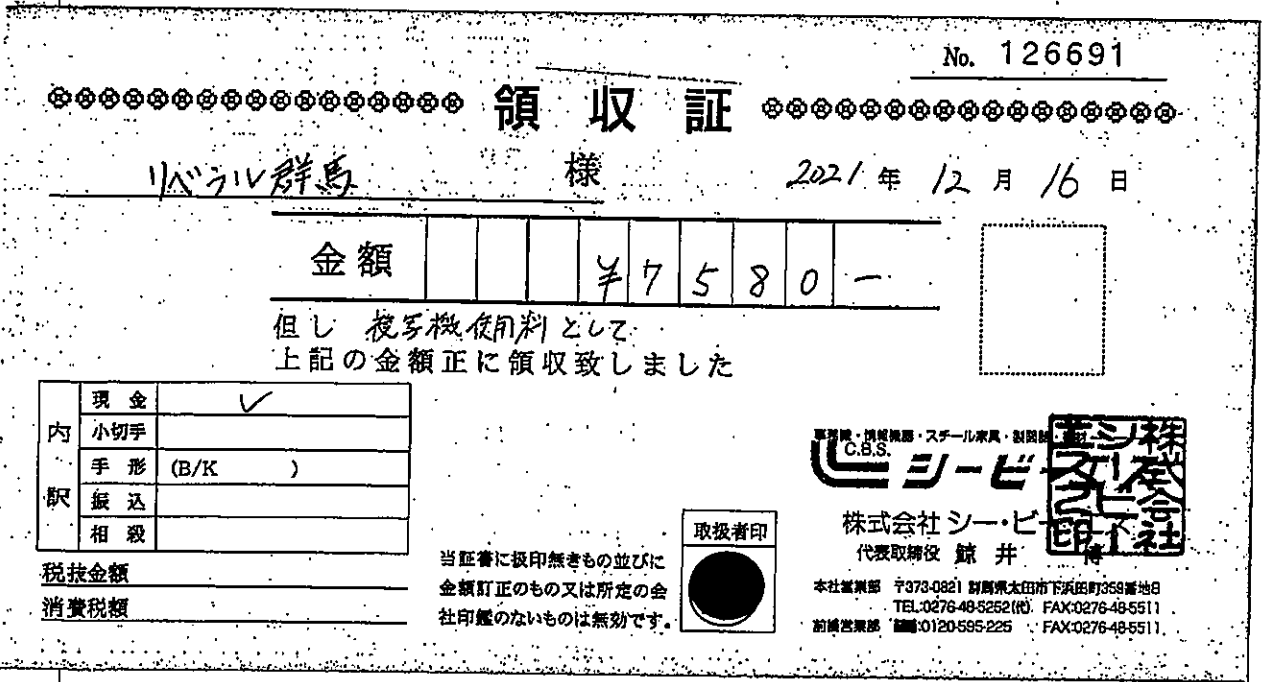 No. 126691
領収証
リベラル群馬 様 2021年12月16日
金額 ¥7580-
但し 複写機使用料として
上記の金額正に領収致しました
内訳
現金 ✓
小切手
手形 (B/K )
振込
相殺
税抜金額
消費税額
当証書に扱印無きもの並びに
金額訂正のもの又は所定の会
社印鑑のないものは無効です。
取扱者印
事務機・情報機器・スチール家具・製図
C.B.S.
シービー
株式会社 シー・ビー
代表取締役 鯨井
本社営業部 〒373-0821 群馬県太田市下浜田町359番地8
TEL:0276-48-5252(代) FAX:0276-48-5511
前橋営業部 0120-595-225 FAX:0276-48-5511